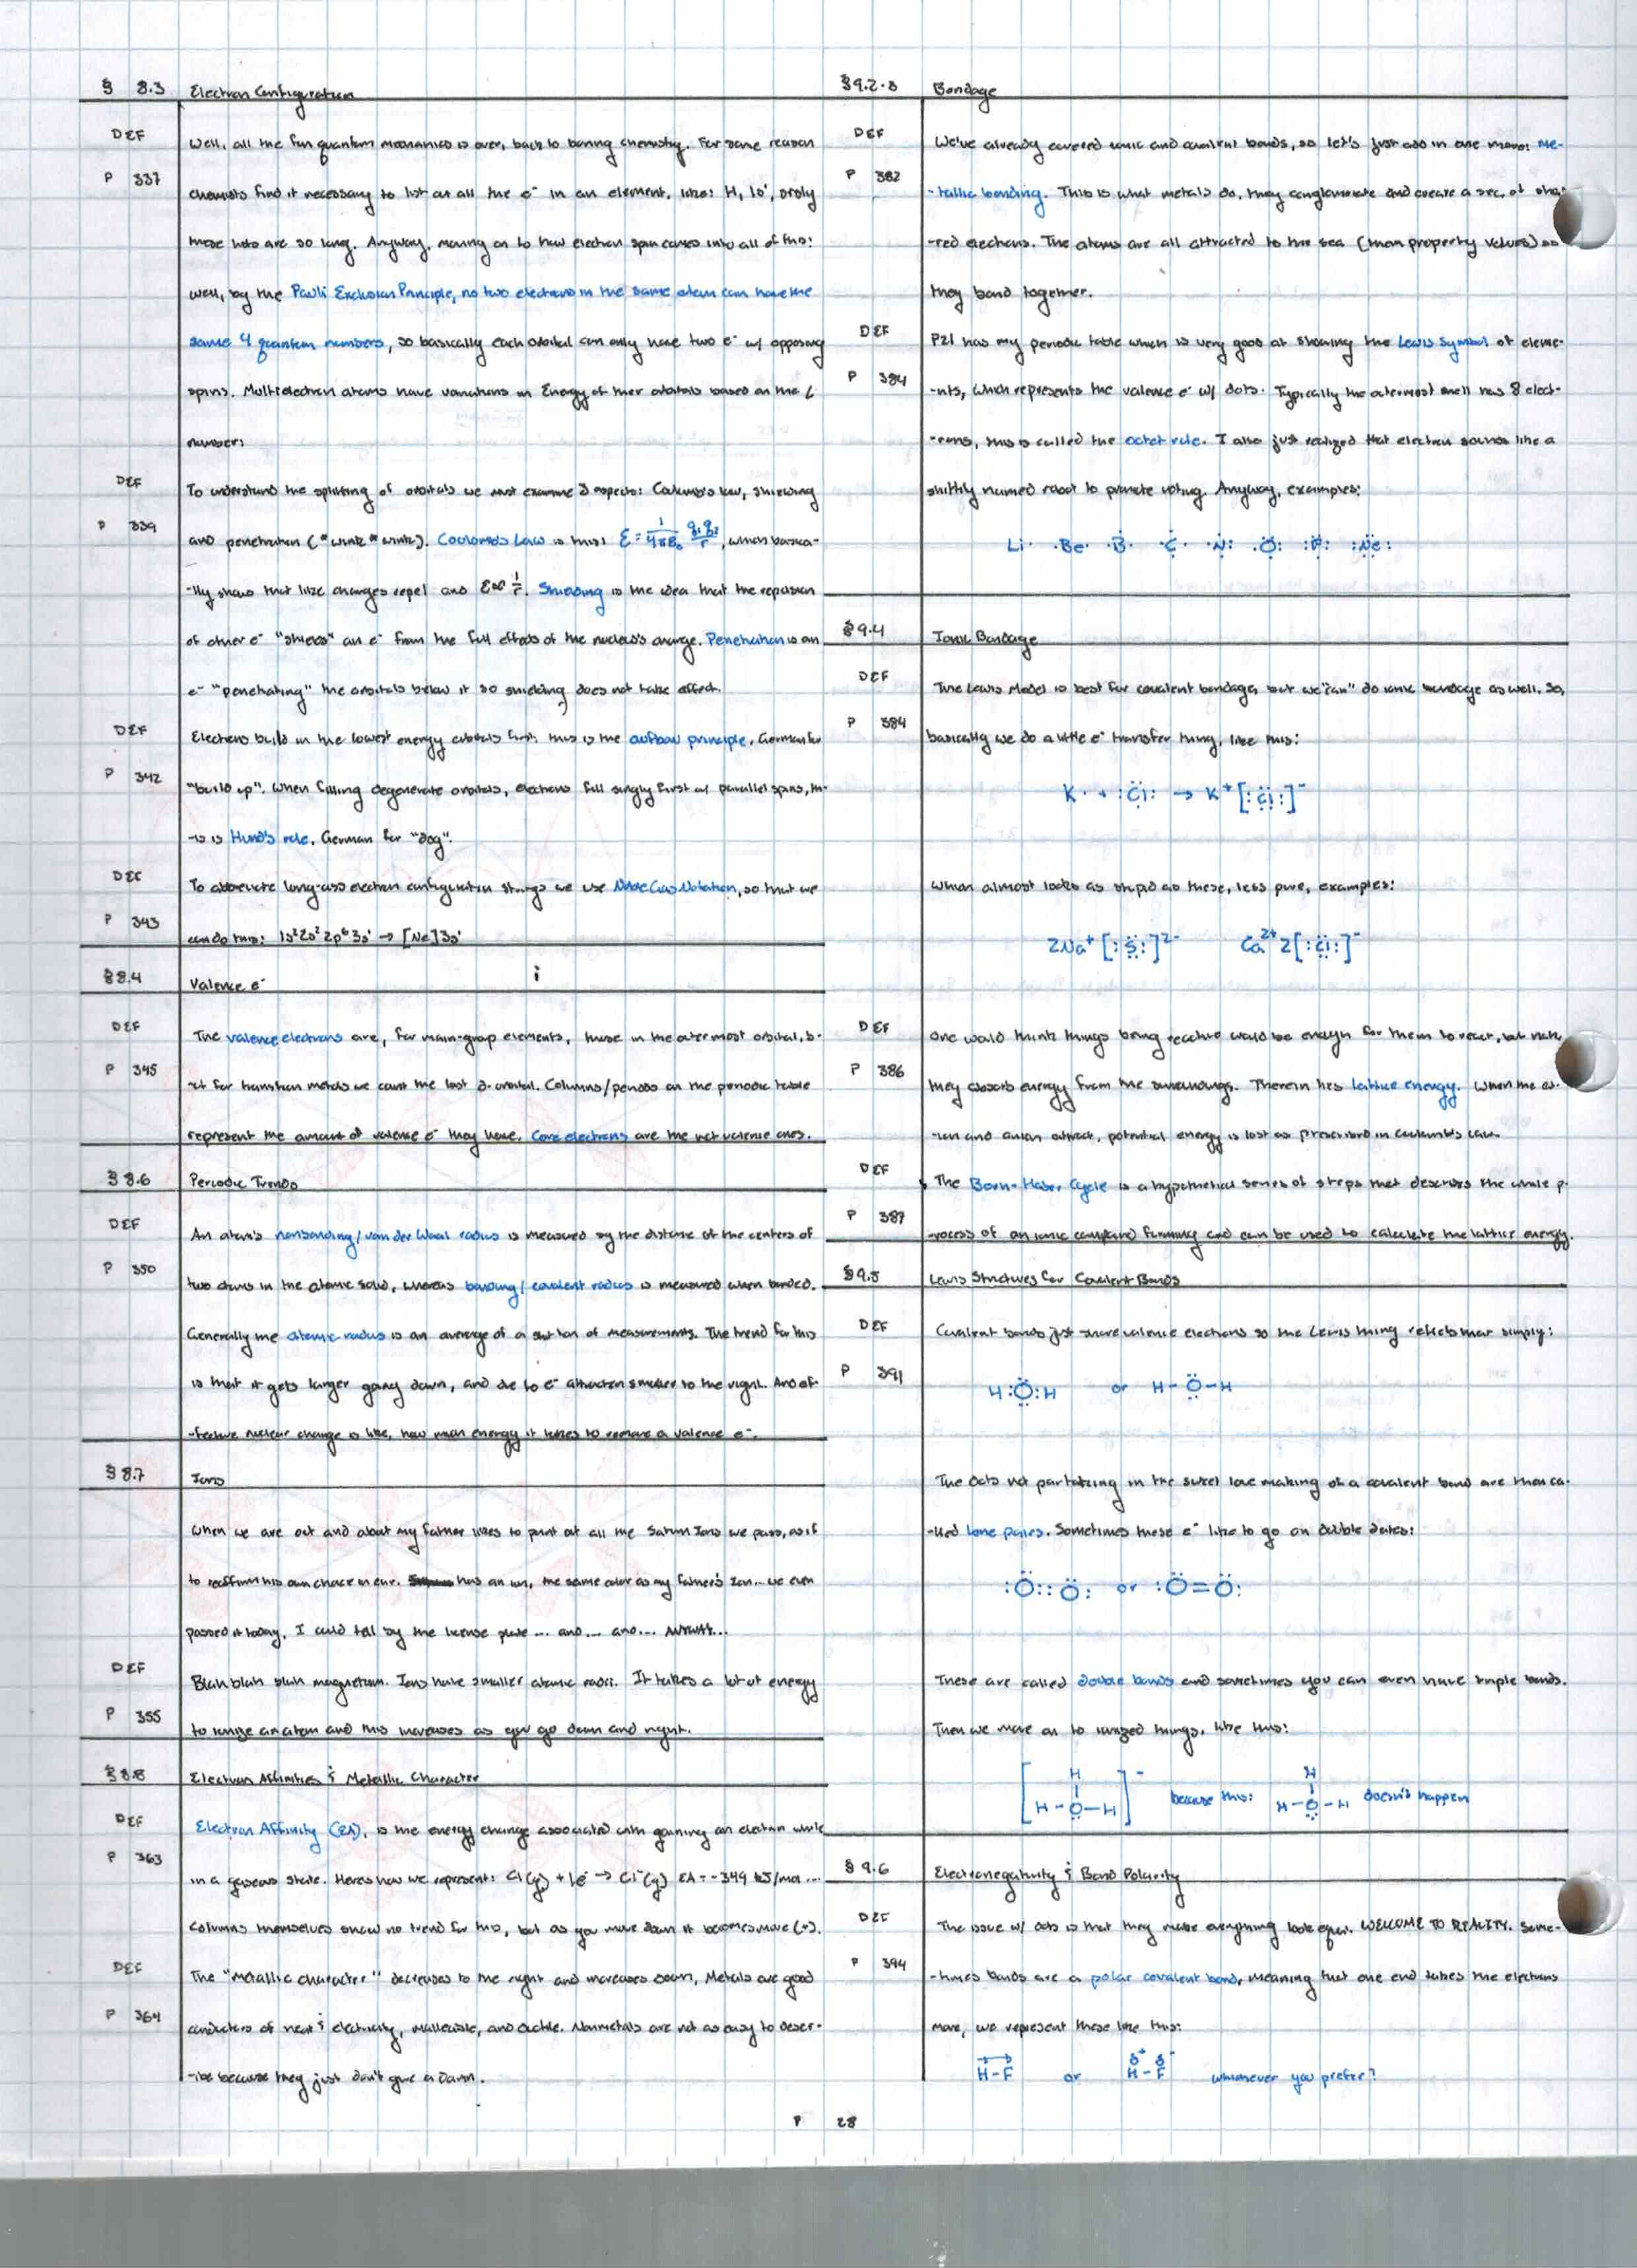 § 8.3 Electron Configuration
DEF Well, all the fun quantum mechanics is over, back to boring chemistry. For some reason
P 337 chemists find it necessary to list out all the e⁻ in an element, like: H, 1s¹,
these notes are so long. Anyway, moving on to how electron spin comes into all of this:
well, by the Pauli Exclusion Principle, no two electrons in the same atom can have the
same 4 quantum numbers, so basically each orbital can only have two e⁻ w/ opposing
spins. Multielectron atoms have variations in Energy of their orbitals based on the l
number:
DEF To understand the splitting of orbitals we must examine 3 aspects: Coulomb's law, shielding
P 339 and penetration (*wink *wink). Coulomb's Law is this: E = 1/4πε₀ q₁q₂/r, which basica-
-lly shows that like charges repel and E ∝ 1/r. Shielding is the idea that the repulsion
of other e⁻ "shields" an e⁻ from the full effects of the nucleus's charge. Penetration is an
e⁻ "penetrating" the orbitals below it so shielding does not take affect.
DEF Electrons build in the lowest energy orbitals first, this is the aufbau principle, German for
P 342 "build up". When filling degenerate orbitals, electrons fill singly first w/ parallel spins, th-
-is is Hund's rule. German for "dog".
DEF To abbreviate long-ass electron configuration strings we use Noble Gas Notation, so that we
P 343 can do this: 1s²2s²2p⁶3s¹ → [Ne]3s¹
§8.4 Valence e⁻
DEF The valence electrons are, for main-group elements, those in the outermost orbital, b-
P 345 -ut for transition metals we count the last d-orbital. Columns/periods on the periodic table
represent the amount of valence e⁻ they have. Core electrons are the not valence ones.
§8.6 Periodic Trends
DEF An atom's nonbonding/van der Waal radius is measured by the distance of the centers of
P 350 two atoms in the atomic solid, whereas bonding/covalent radius is measured when bonded.
Generally the atomic radius is an average of a shit ton of measurements. The trend for this
is that it gets larger going down, and due to e⁻ attraction smaller to the right. And ef-
-fective nuclear charge is like, how much energy it takes to remove a valence e⁻.
§8.7 Ions
When we are out and about my father likes to point out all the Saturn Ions we pass, as if
to reaffirm his own choice in car. has an ion, the same color as my father's Ion... we even
passed it today. I could tell by the license plate... and... and... ANYWAY...
DEF Blah blah blah magnetism. Ions have smaller atomic radii. It takes a lot of energy
P 355 to ionize an atom and this increases as you go down and right.
§8.8 Electron Affinities & Metallic Character
DEF Electron Affinity (EA), is the energy change associated with gaining an electron while
P 363 in a gaseous state. Here's how we represent: Cl(g) + 1e⁻ → Cl⁻(g) EA = -349 kJ/mol...
Columns themselves show no trend for this, but as you move down it becomes more (+).
DEF The "metallic character" decreases to the right and increases down, Metals are good
P 364 conductors of heat & electricity, malleable, and ductile. Nonmetals are not as easy to descr-
-ibe because they just don't give a Damn.
§9.2-3 Bondage
DEF We've already covered ionic and covalent bonds, so let's just add in one more: me-
P 382 -tallic bonding. This is what metals do, they conglomerate and create a sea of sha-
-red electrons. The atoms are all attracted to the sea (than property values) so
they bond together.
DEF P21 has my periodic table which is very good at showing the Lewis Symbol of eleme-
P 384 -nts, which represents the valence e⁻ w/ dots. Typically the outermost shell has 8 elect-
-rons, this is called the octet rule. I also just realized that electron sounds like a
shittily named robot to promote voting. Anyway, examples:
Li· ·Be· ·Ḃ· ·Ċ̣· ·N̈: ·Ö: :F̈: :N̈e:
§9.4 Ionic Bondage
DEF The Lewis Model is best for covalent bondage, but we "can" do ionic bondage as well. So,
P 384 basically we do a little e⁻ transfer thing, like this:
K· + :C̈l: → K⁺[:C̈l:]⁻
which almost looks as stupid as these, less pure, examples:
2Na⁺[:S̈:]²⁻ Ca²⁺ 2[:C̈l:]⁻
DEF One would think things being reactive would be enough for them to react, but nah,
P 386 they absorb energy from the surroundings. Therein lies lattice energy. When the cat-
-ion and anion attract, potential energy is lost as prescribed in coulombs law.
DEF The Born-Haber Cycle is a hypothetical series of steps that describes the whole p-
P 387 -rocess of an ionic compound forming and can be used to calculate the lattice energy.
§9.5 Lewis Structures for Covalent Bonds
DEF Covalent bonds just share valence electrons so the Lewis thing reflects that simply:
P 391 H:Ö:H or H-Ö-H
The dots not partaking in the sweet love making of a covalent bond are then ca-
-lled lone pairs. Sometimes these e⁻ like to go on double dates:
:Ö::Ö: or :Ö=Ö:
These are called double bonds and sometimes you can even have triple bonds.
Then we move on to ionized things, like this:
H H
[H-O-H]⁻ because this: H-O-H doesn't happen
§9.6 Electronegativity & Bond Polarity
DEF The issue w/ dots is that they make everything look equal. WELCOME TO REALITY. Some-
P 394 -times bonds are a polar covalent bond, meaning that one end takes the electrons
more, we represent these like this:
H-F or δ⁺ δ⁻ H-F whichever you prefer!
P 28